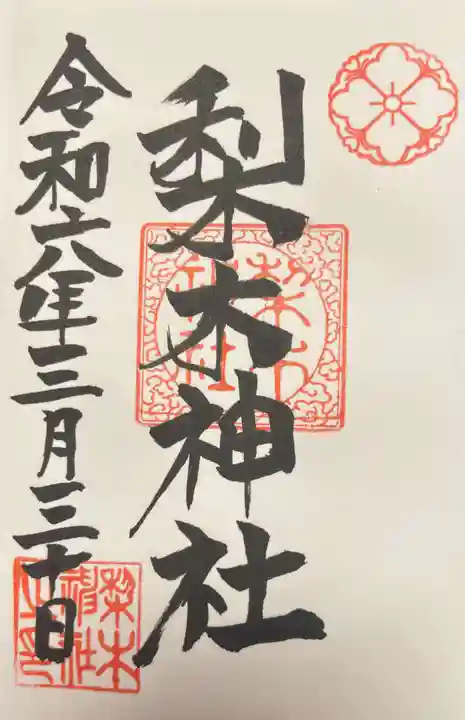 梨木神社
令和六年三月三十日
梨木
神社
梨木
神社
之印